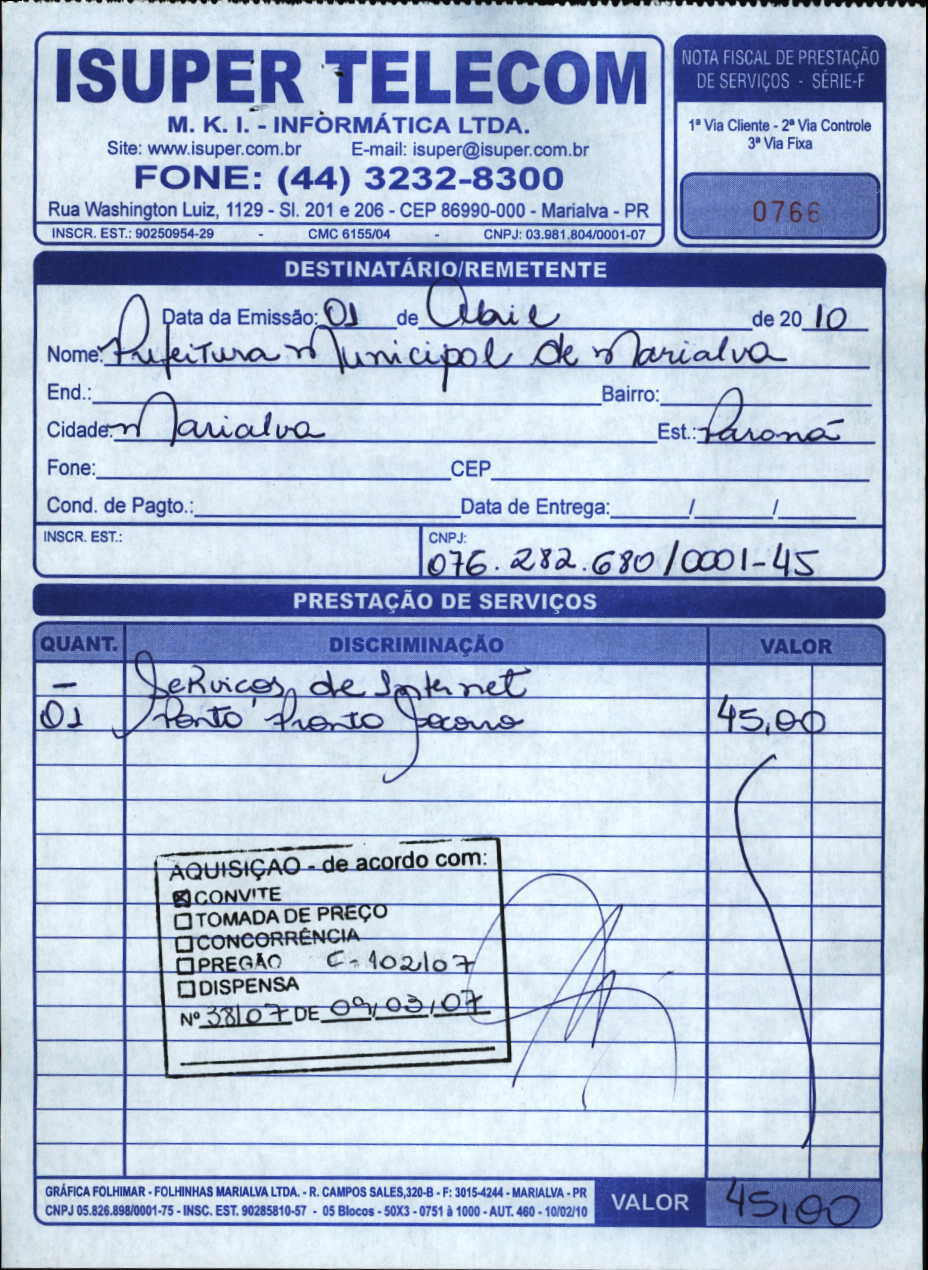 ISUPER TELECOM
M. K. I. - INFORMÁTICA LTDA.
Site: www.isuper.com.br E-mail: isuper@isuper.com.br
FONE: (44) 3232-8300
Rua Washington Luiz, 1129 - Sl. 201 e 206 - CEP 86990-000 - Marialva - PR
INSCR. EST.: 90250954-29 - CMC 6155/04 - CNPJ: 03.981.804/0001-07
NOTA FISCAL DE PRESTAÇÃO
DE SERVIÇOS - SÉRIE-F
1ª Via Cliente - 2ª Via Controle
3ª Via Fixa
0766
DESTINATÁRIO/REMETENTE
Data da Emissão: 01 de Abril de 20 10
Nome: Prefeitura Municipal de Marialva
End.: Bairro:
Cidade: Marialva Est.: Paraná
Fone: CEP
Cond. de Pagto.: Data de Entrega: / /
INSCR. EST.: CNPJ:
076.282.680/0001-45
PRESTAÇÃO DE SERVIÇOS
QUANT. DISCRIMINAÇÃO VALOR
- Serviços de Internet
01 Ponto Pronto 45,00
AQUISIÇÃO - de acordo com:
CONVITE
TOMADA DE PREÇO
CONCORRÊNCIA
PREGÃO C-102/07
DISPENSA
Nº 38/07 DE 09/03/07
GRÁFICA FOLHIMAR - FOLHINHAS MARIALVA LTDA. - R. CAMPOS SALES,320-B - F: 3015-4244 - MARIALVA - PR
CNPJ 05.826.898/0001-75 - INSC. EST. 90285810-57 - 05 Blocos - 50X3 - 0751 à 1000 - AUT. 460 - 10/02/10
VALOR 45,00